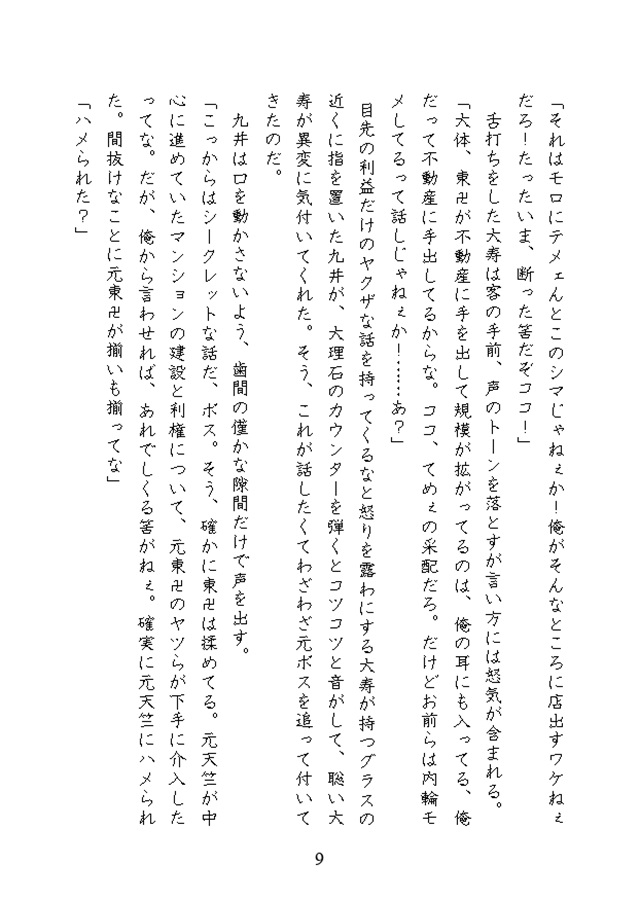 「それはモロにテメェんとこのシマじゃねぇか！俺がそんなところに店出すワケねぇ
だろ！たったいま、断った筈だぞココ！」
　舌打ちをした大寿は客の手前、声のトーンを落とすが言い方には怒気が含まれる。
「大体、東卍が不動産に手を出して規模が拡がってるのは、俺の耳にも入ってる、俺
だって不動産に手出してるからな。ココ、てめぇの采配だろ。だけどお前らは内輪モ
メしてるって話しじゃねぇか！……あ？」
　目先の利益だけのヤクザな話を持ってくるなと怒りを露わにする大寿が持つグラスの
近くに指を置いた九井が、大理石のカウンターを弾くとコツコツと音がして、聡い大
寿が異変に気付いてくれた。そう、これが話したくてわざわざ元ボスを追って付いて
きたのだ。
　九井は口を動かさないよう、歯間の僅かな隙間だけで声を出す。
「こっからはシークレットな話だ、ボス。そう、確かに東卍は揉めてる。元天竺が中
心に進めていたマンションの建設と利権について、元東卍のヤツらが下手に介入した
ってな。だが、俺から言わせれば、あれでしくる筈がねぇ。確実に元天竺にハメられ
た。間抜けなことに元東卍が揃いも揃ってな」
「ハメられた？」
9